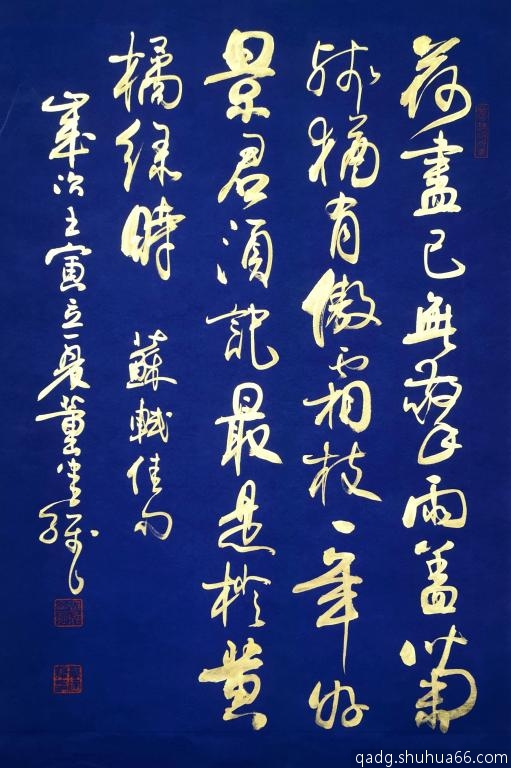 荷盡已無擎雨蓋菊
殘猶有傲霜枝一年好
景君須記最是橙黃
橘綠時 蘇軾佳句
歲次壬寅立夏董
qadg.shuhua66.com